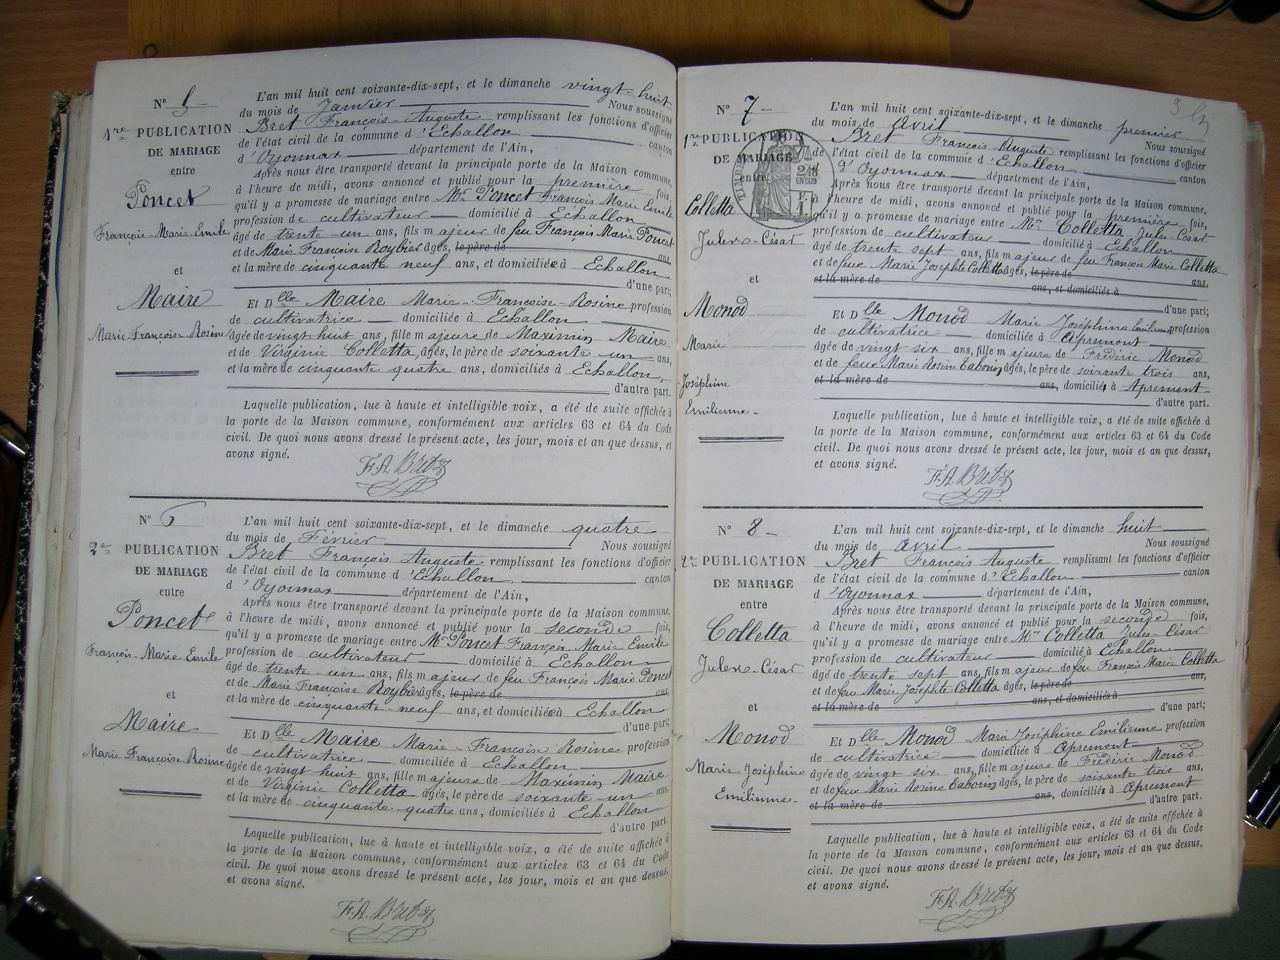 N° 5
1re PUBLICATION
DE MARIAGE
entre
Poncet
François-Marie-Emile
et
Maire
Marie-Françoise-Rosine
L'an mil huit cent soixante-dix-sept, et le dimanche vingt-huit
du mois de Janvier Nous soussigné
Bret François-Auguste remplissant les fonctions d'officier
de l'état civil de la commune d'Echallon canton
d'Oyonnax département de l'Ain,
Après nous être transporté devant la principale porte de la Maison commune
à l'heure de midi, avons annoncé et publié pour la première fois,
qu'il y a promesse de mariage entre Mr Poncet François Marie Emile
profession de cultivateur domicilié à Echallon
âgé de trente un ans, fils majeur de feu François Marie Poncet
et de Marie Françoise Roybier âgés, le père de ans,
et la mère de cinquante neuf ans, et domiciliée à Echallon
d'une part;
Et Dlle Maire Marie-Françoise-Rosine profession
de cultivatrice domiciliée à Echallon
âgée de vingt huit ans, fille majeure de Maximin Maire
et de Virginie Colletta, âgés, le père de soixante un ans,
et la mère de cinquante quatre ans, domiciliés à Echallon,
d'autre part.
Laquelle publication, lue à haute et intelligible voix, a été de suite affichée à
la porte de la Maison commune, conformément aux articles 63 et 64 du Code
civil. De quoi nous avons dressé le présent acte, les jour, mois et an que dessus, et
avons signé.
F.A. Bret
N° 6
2e PUBLICATION
DE MARIAGE
entre
Poncet
François-Marie-Emile
et
Maire
Marie Françoise Rosine
L'an mil huit cent soixante-dix-sept, et le dimanche quatre
du mois de Février Nous soussigné
Bret François Auguste remplissant les fonctions d'officier
de l'état civil de la commune d'Echallon canton
d'Oyonnax département de l'Ain,
Après nous être transporté devant la principale porte de la Maison commune,
à l'heure de midi, avons annoncé et publié pour la seconde fois,
qu'il y a promesse de mariage entre Mr Poncet François Marie Emile
profession de cultivateur domicilié à Echallon
âgé de trente un ans, fils majeur de feu François Marie Poncet
et de Marie Françoise Roybier âgés, le père de ans,
et la mère de cinquante neuf ans, et domiciliée à Echallon
d'une part;
Et Dlle Maire Marie-François Rosine profession
de cultivatrice domiciliée à Echallon
âgée de vingt huit ans, fille majeure de Maximin Maire
et de Virginie Colletta âgés, le père de soixante un ans,
et la mère de cinquante quatre ans, domiciliés à Echallon
d'autre part.
Laquelle publication, lue à haute et intelligible voix, a été de suite affichée à
la porte de la Maison commune, conformément aux articles 63 et 64 du Code
civil. De quoi nous avons dressé le présent acte, les jour, mois et an que dessus,
et avons signé.
F.A. Bret
N° 7
1re PUBLICATION
DE MARIAGE
entre
Colletta
Jules-César
et
Monod
Marie
Joséphine
Emilienne
L'an mil huit cent soixante-dix-sept, et le dimanche premier
du mois de Avril Nous soussigné
Bret François Auguste remplissant les fonctions d'officier
de l'état civil de la commune d'Echallon canton
d'Oyonnax département de l'Ain,
Après nous être transporté devant la principale porte de la Maison commune,
à l'heure de midi, avons annoncé et publié pour la première fois,
qu'il y a promesse de mariage entre Mr Colletta Jules César
profession de cultivateur domicilié à Echallon
âgé de trente sept ans, fils majeur de feu François Marie Colletta
et de feue Marie Josephte Colletta âgés, le père de ans,
et la mère de ans, et domiciliés à
d'une part;
Et Dlle Monod Marie Joséphine profession
de cultivatrice domiciliée à Apremont
âgée de vingt six ans, fille majeure de Frédéric Monod
et de feue Marie Rosine âgés, le père de soixante trois ans,
et la mère de ans, domiciliés à Apremont
d'autre part.
Laquelle publication, lue à haute et intelligible voix, a été de suite affichée à
la porte de la Maison commune, conformément aux articles 63 et 64 du Code
civil. De quoi nous avons dressé le présent acte, les jour, mois et an que dessus,
et avons signé.
F.A. Bret
N° 8
2e PUBLICATION
DE MARIAGE
entre
Colletta
Jules-César
et
Monod
Marie Joséphine
Emilienne
L'an mil huit cent soixante-dix-sept, et le dimanche huit
du mois de Avril Nous soussigné
Bret François Auguste remplissant les fonctions d'officier
de l'état civil de la commune d'Echallon canton
d'Oyonnax département de l'Ain,
Après nous être transporté devant la principale porte de la Maison commune,
à l'heure de midi, avons annoncé et publié pour la seconde fois,
qu'il y a promesse de mariage entre Mr Colletta Jules César
profession de cultivateur domicilié à Echallon
âgé de trente sept ans, fils majeur de feu François Marie Colletta
et de feue Marie Josephte Colletta âgés, le père de ans,
et la mère de ans, et domiciliés à
d'une part;
Et Dlle Monod Marie Joséphine Emilienne profession
de cultivatrice domiciliée à Apremont
âgée de vingt six ans, fille majeure de Frédéric Monod
et de feue Marie Rosine âgés, le père de soixante trois ans,
et la mère de ans, domiciliés à Apremont
d'autre part.
Laquelle publication, lue à haute et intelligible voix, a été de suite affichée à
la porte de la Maison commune, conformément aux articles 63 et 64 du Code
civil. De quoi nous avons dressé le présent acte, les jour, mois et an que dessus,
et avons signé.
F.A. Bret